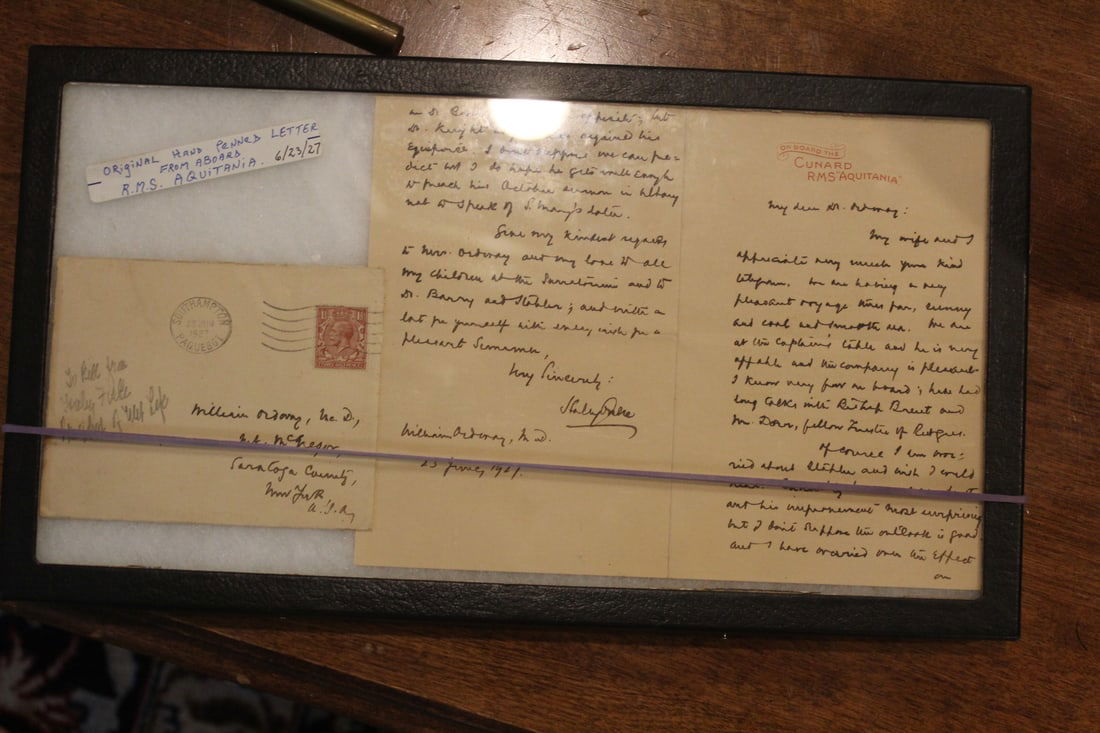 ORIGINAL HAND PENNED LETTER
FROM ABOARD
R.M.S. AQUITANIA. 6/23/27
SOUTHAMPTON
1927
PAQUEBOT
To Bill from
William Ordway, M.D.,
Mt. McGregor,
Saratoga County,
New York
U.S.A.
ON BOARD THE
CUNARD
RMS "AQUITANIA"
My dear Dr. Ordway:
My wife and I
appreciate very much your kind
telegram. We are having a very
pleasant voyage thus far, sunny
and cool and smooth sea. We are
at the Captain's table and he is very
affable and the company is pleasant
I know very few on board; have had
long talks with Bishop Brent and
Mr. Dorr, fellow Trustee of Rutgers.
Of course I am wor-
ried about Stebler and wish I could
and his improvement most surprising
but I don't suppose the outlook is good
and I have worried over the effect
on
on Dr.
Dr. Knight acquired his
I don't suppose we can pre-
dict but I do hope he gets well enough
to preach his October sermon in Albany
not to speak of St. Mary's later.
Give my kindest regards
to Mrs. Ordway and my love to all
my children at the Sanatorium and to
Dr. Barry and Stebler; and with a
lot for yourself with every wish for a
pleasant Summer,
Very Sincerely:
William Ordway, M.D.
23 June, 1927.